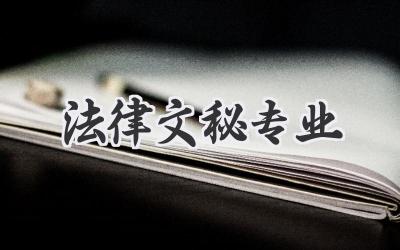 法律文秘专业